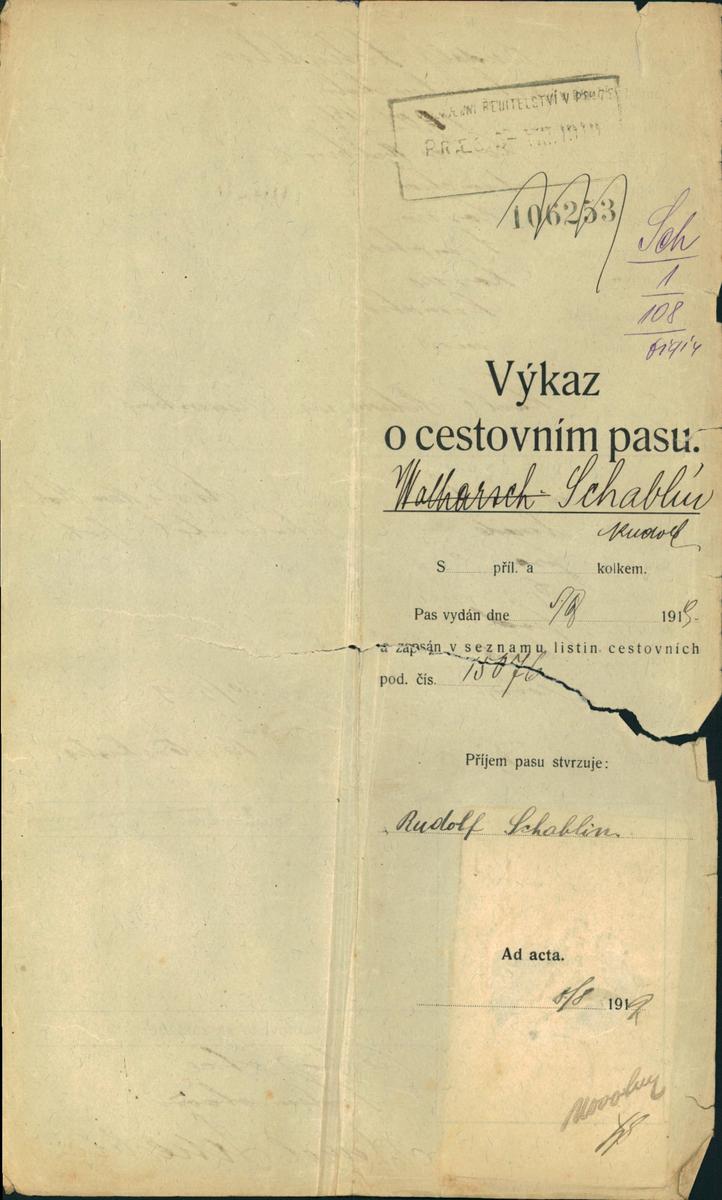 ŘEDITELSTVÍ V PRAZE
106253
Sch
1
108
Výkaz
o cestovním pasu.
Schablín
Rudolf
S příl. a kolkem.
Pas vydán dne 5/8 1919.
a zapsán v seznamu listin cestovních
pod. čís. 15076
Příjem pasu stvrzuje:
Rudolf Schablin
Ad acta.
5/8 1919